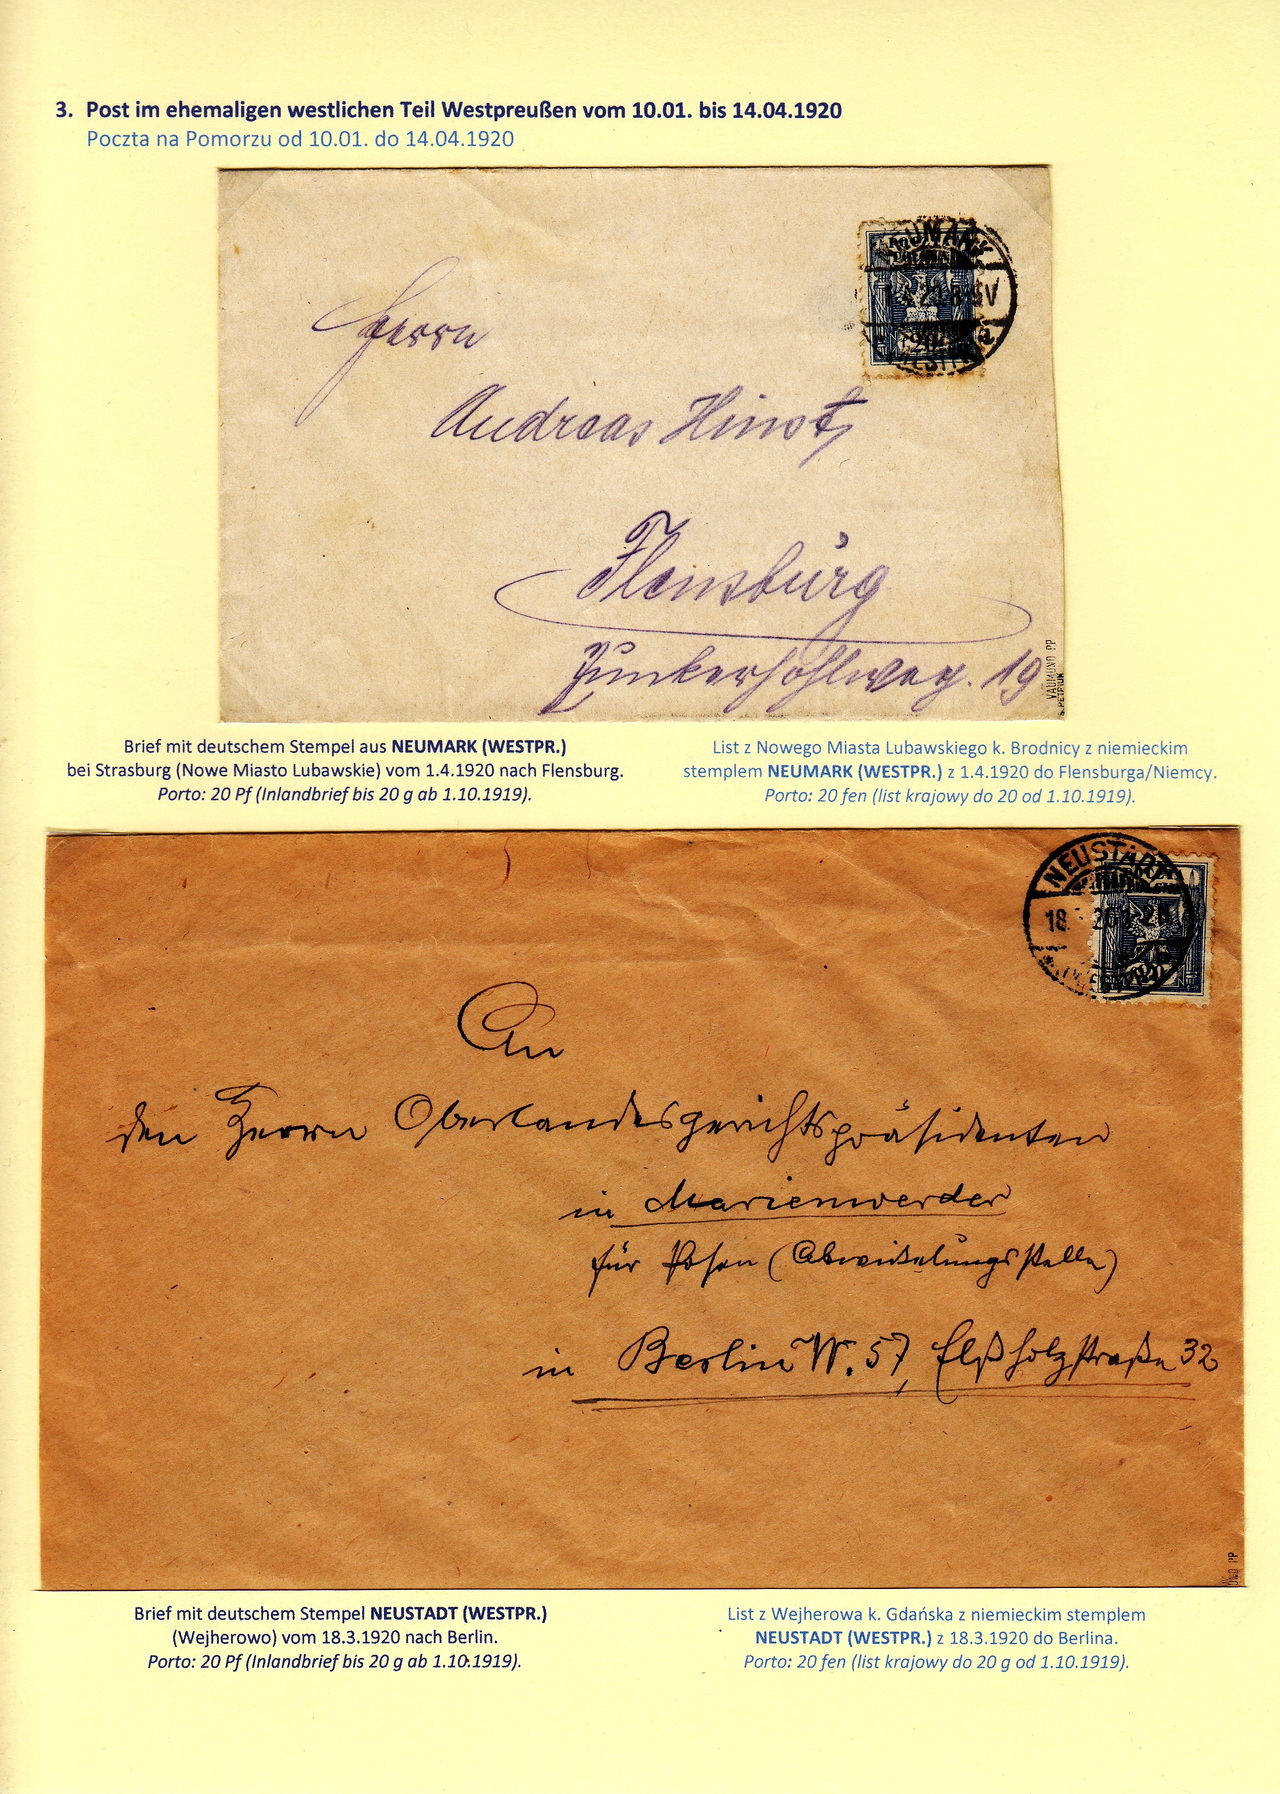 3. Post im ehemaligen westlichen Teil Westpreußen vom 10.01. bis 14.04.1920
Poczta na Pomorzu od 10.01. do 14.04.1920
NEUMARK
20
Herrn
Andreas Hinst,
Flensburg
Junkerhohlweg. 19
VAUMUND PP
S. PETRIUK
Brief mit deutschem Stempel aus NEUMARK (WESTPR.)
bei Strasburg (Nowe Miasto Lubawskie) vom 1.4.1920 nach Flensburg.
Porto: 20 Pf (Inlandbrief bis 20 g ab 1.10.1919).
List z Nowego Miasta Lubawskiego k. Brodnicy z niemieckim
stemplem NEUMARK (WESTPR.) z 1.4.1920 do Flensburga/Niemcy.
Porto: 20 fen (list krajowy do 20 od 1.10.1919).
NEUSTADT
18. 20
An
den Herrn Oberlandesgerichtspräsidenten
in Marienwerder
für Posen (Abwickelungsstelle)
in Berlin W. 57, Elßholzstraße 32
Brief mit deutschem Stempel NEUSTADT (WESTPR.)
(Wejherowo) vom 18.3.1920 nach Berlin.
Porto: 20 Pf (Inlandbrief bis 20 g ab 1.10.1919).
List z Wejherowa k. Gdańska z niemieckim stemplem
NEUSTADT (WESTPR.) z 18.3.1920 do Berlina.
Porto: 20 fen (list krajowy do 20 g od 1.10.1919).